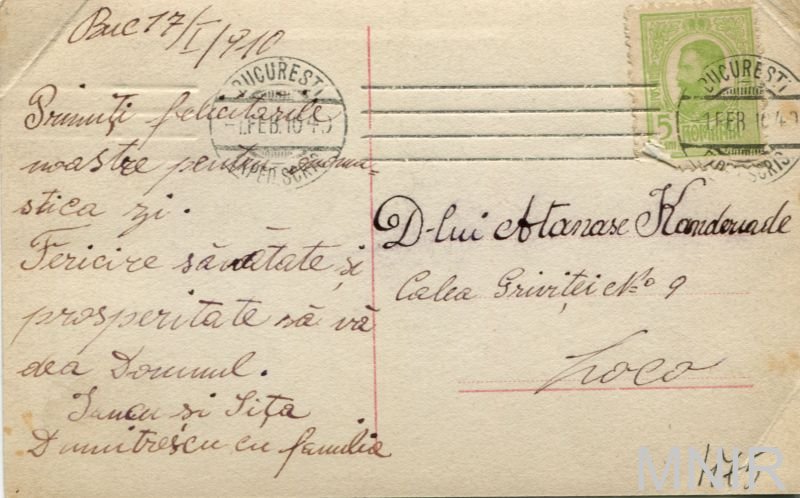 Buc 17/I/910
Primiți felicitarile
noastre pentru onoma-
stica zi.
Fericire sănătate și
prosperitate să vă
dea Domnul.
Iancu si Sița
Dumitrescu cu familia
BUCURESTI
-1.FEB.10 4-5
EXPED. SCRIS.
5
ROMANIA
BUCURESTI
-1.FEB.10 4-5
D-lui Atanase
Calea Griviței No 9
Loco
MNIR